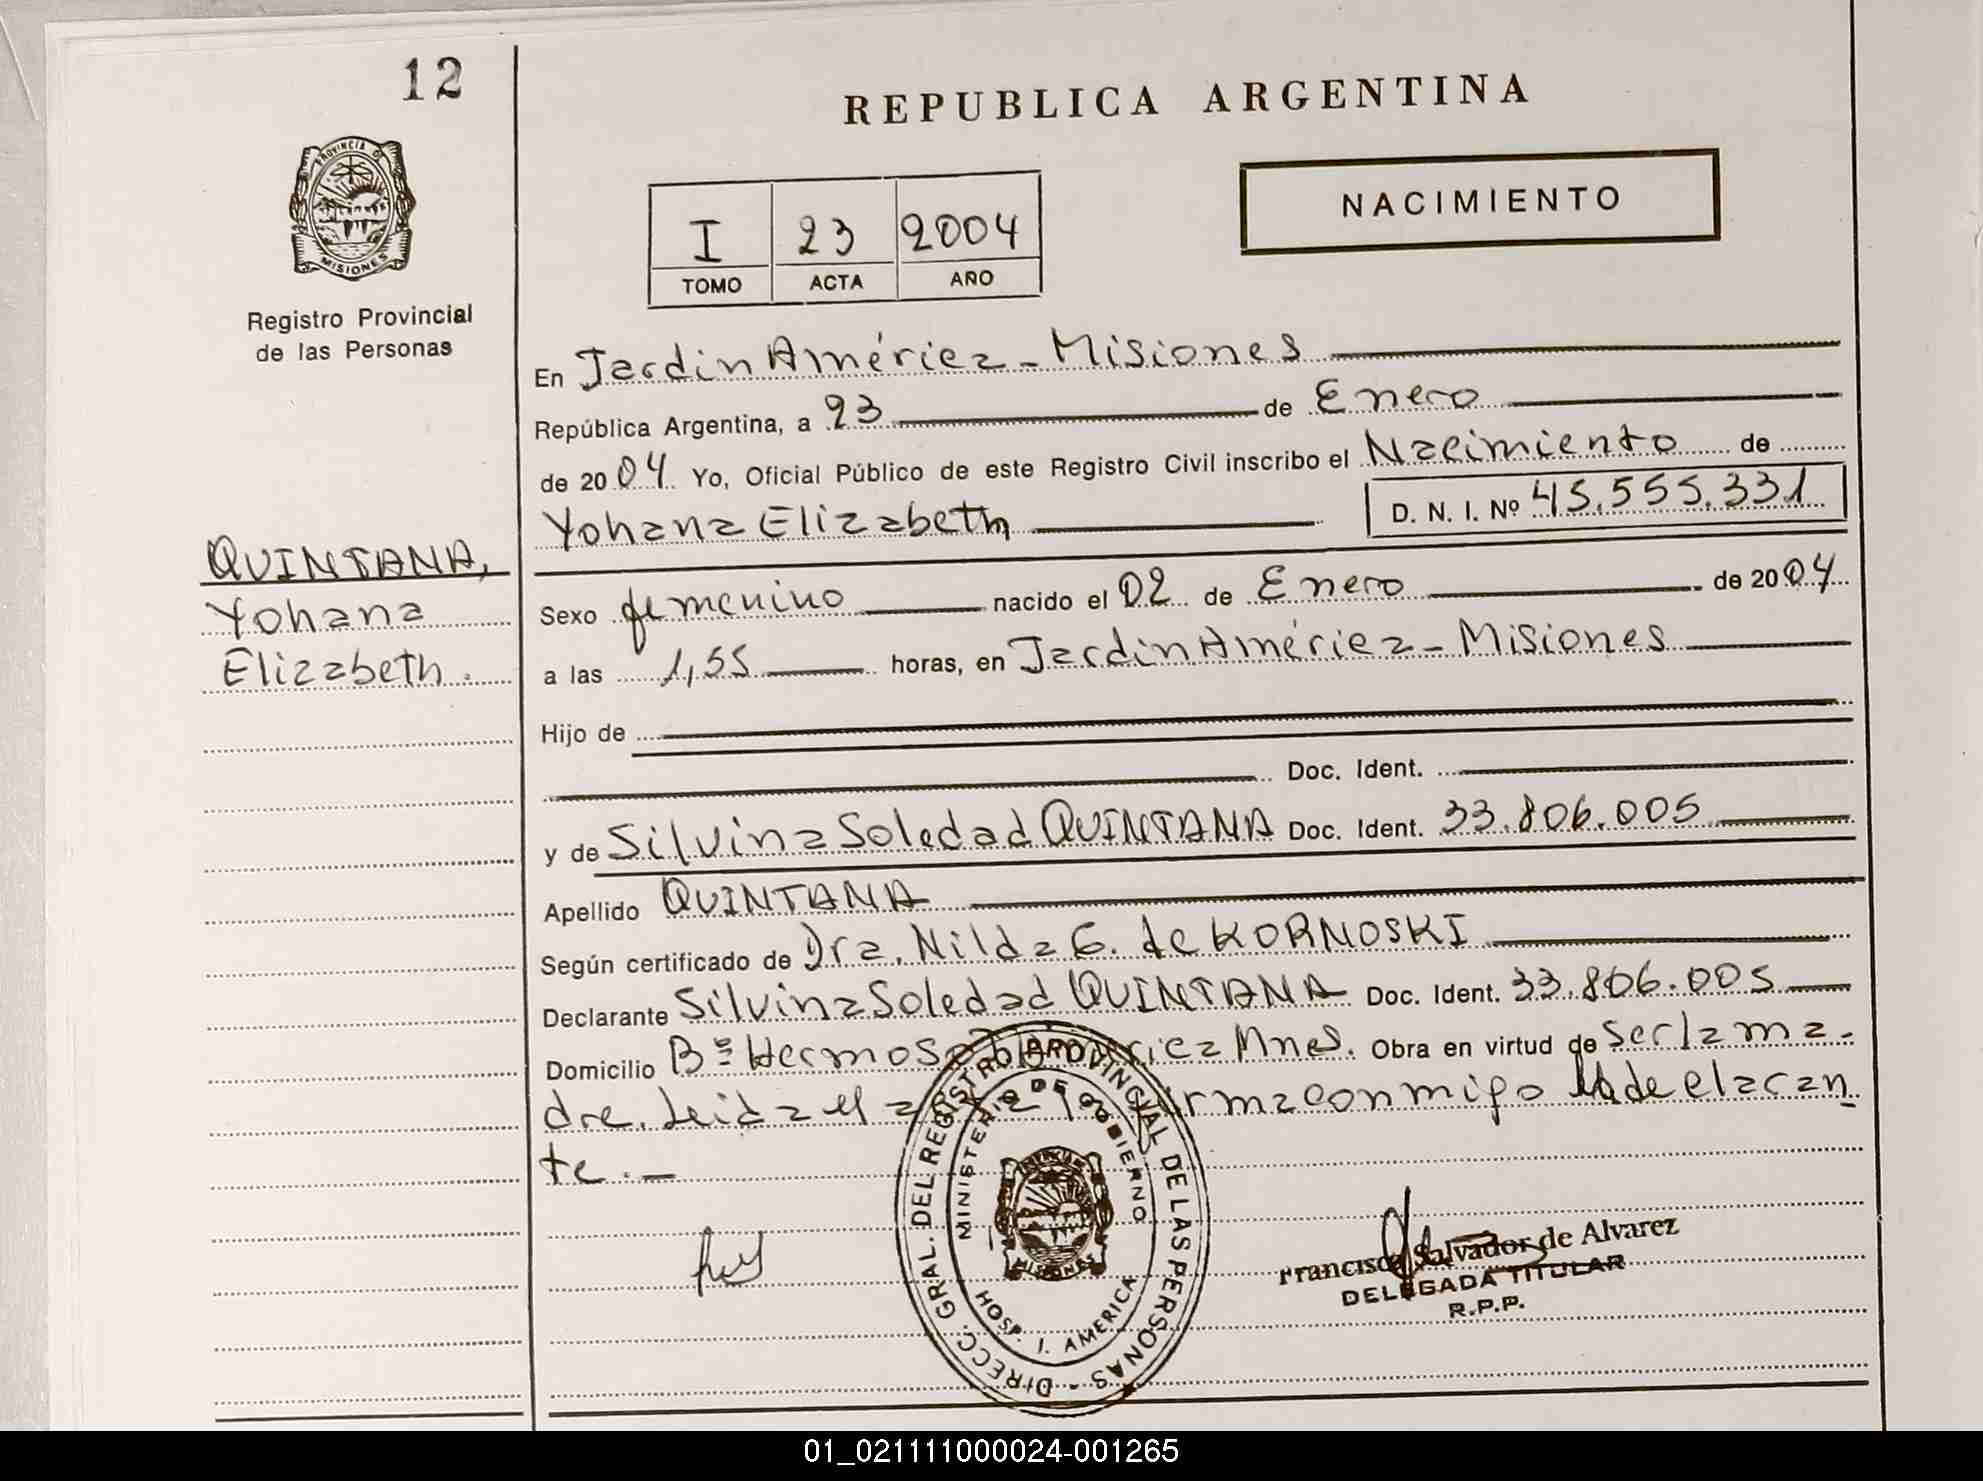 12
REPUBLICA ARGENTINA
PROVINCIA DE
MISIONES
Registro Provincial
de las Personas
NACIMIENTO
I 23 2004
TOMO ACTA AÑO
En Jardin América - Misiones
República Argentina, a 23 de Enero
de 2004 Yo, Oficial Público de este Registro Civil inscribo el Nacimiento de
Yohana Elizabeth D. N. I. Nº 45.555.331
QUINTANA,
Yohana
Elizabeth.
Sexo femenino nacido el 02 de Enero de 2004
a las 1,55 horas, en Jardin América - Misiones
Hijo de
Doc. Ident.
y de Silvina Soledad QUINTANA Doc. Ident. 33.806.005
Apellido QUINTANA
Según certificado de Dra. Nilda G. de KORNOSKI
Declarante Silvina Soledad QUINTANA Doc. Ident. 33.806.005
Domicilio Bº Hermoso Mnes. Obra en virtud de ser la ma-
dre. Leida el conmigo la declaran
te.-
DIRECC. GRAL. DEL REGISTRO PROVINCIAL DE LAS PERSONAS -
MINISTERIO DE GOBIERNO
HOSP. J. AMERICA
MISIONES
Francisca Salvador de Alvarez
DELEGADA TITULAR
R.P.P.
01_021111000024-001265